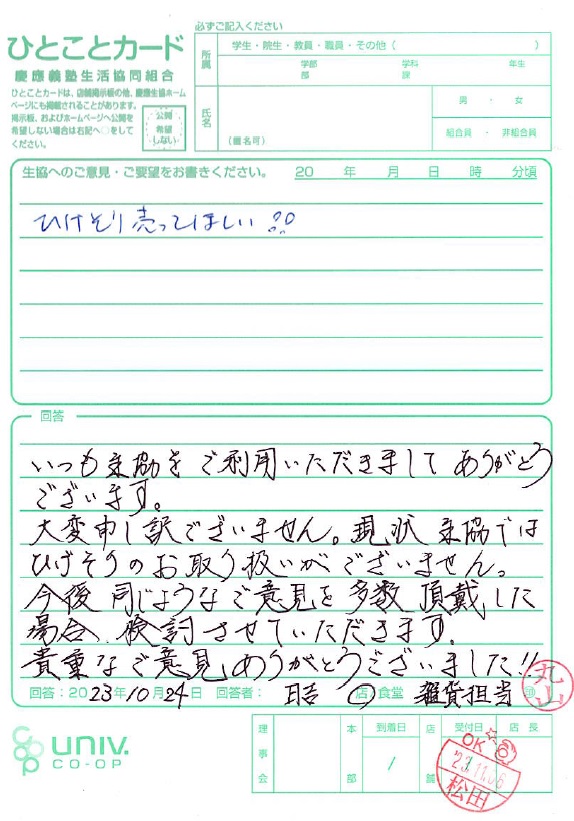 ひとことカード
慶應義塾生活協同組合
ひとことカードは、店舗掲示板の他、慶應生協ホーム
ページにも掲載されることがあります。
掲示板、およびホームページへ公開を
希望しない場合は右記へ○をして
ください。
公開
希望
しない
必ずご記入ください
所属
学生・院生・教員・職員・その他（　　　）
学部 学科 年生
部 課
氏名
（匿名可）
男 ・ 女
組合員 ・ 非組合員
生協へのご意見・ご要望をお書きください。 20 年 月 日 時 分頃
ひけそり売ってほしい!!
回答
いつも生協をご利用いただきまして ありがとう
ございます。
大変申し訳ございません。現状 生協では
ひげそりのお取り扱いがございません。
今後 同じようなご意見を多数 頂戴した
場合、検討させていただきます。
貴重なご意見ありがとうございました!!
回答：2023年10月24日 回答者： 日吉 店・食堂 雑貨担当 ㊞
丸山
UNIV.
CO-OP
理事会
本部
到着日
/
店舗
受付日
店長
OK
23.11.06
松田